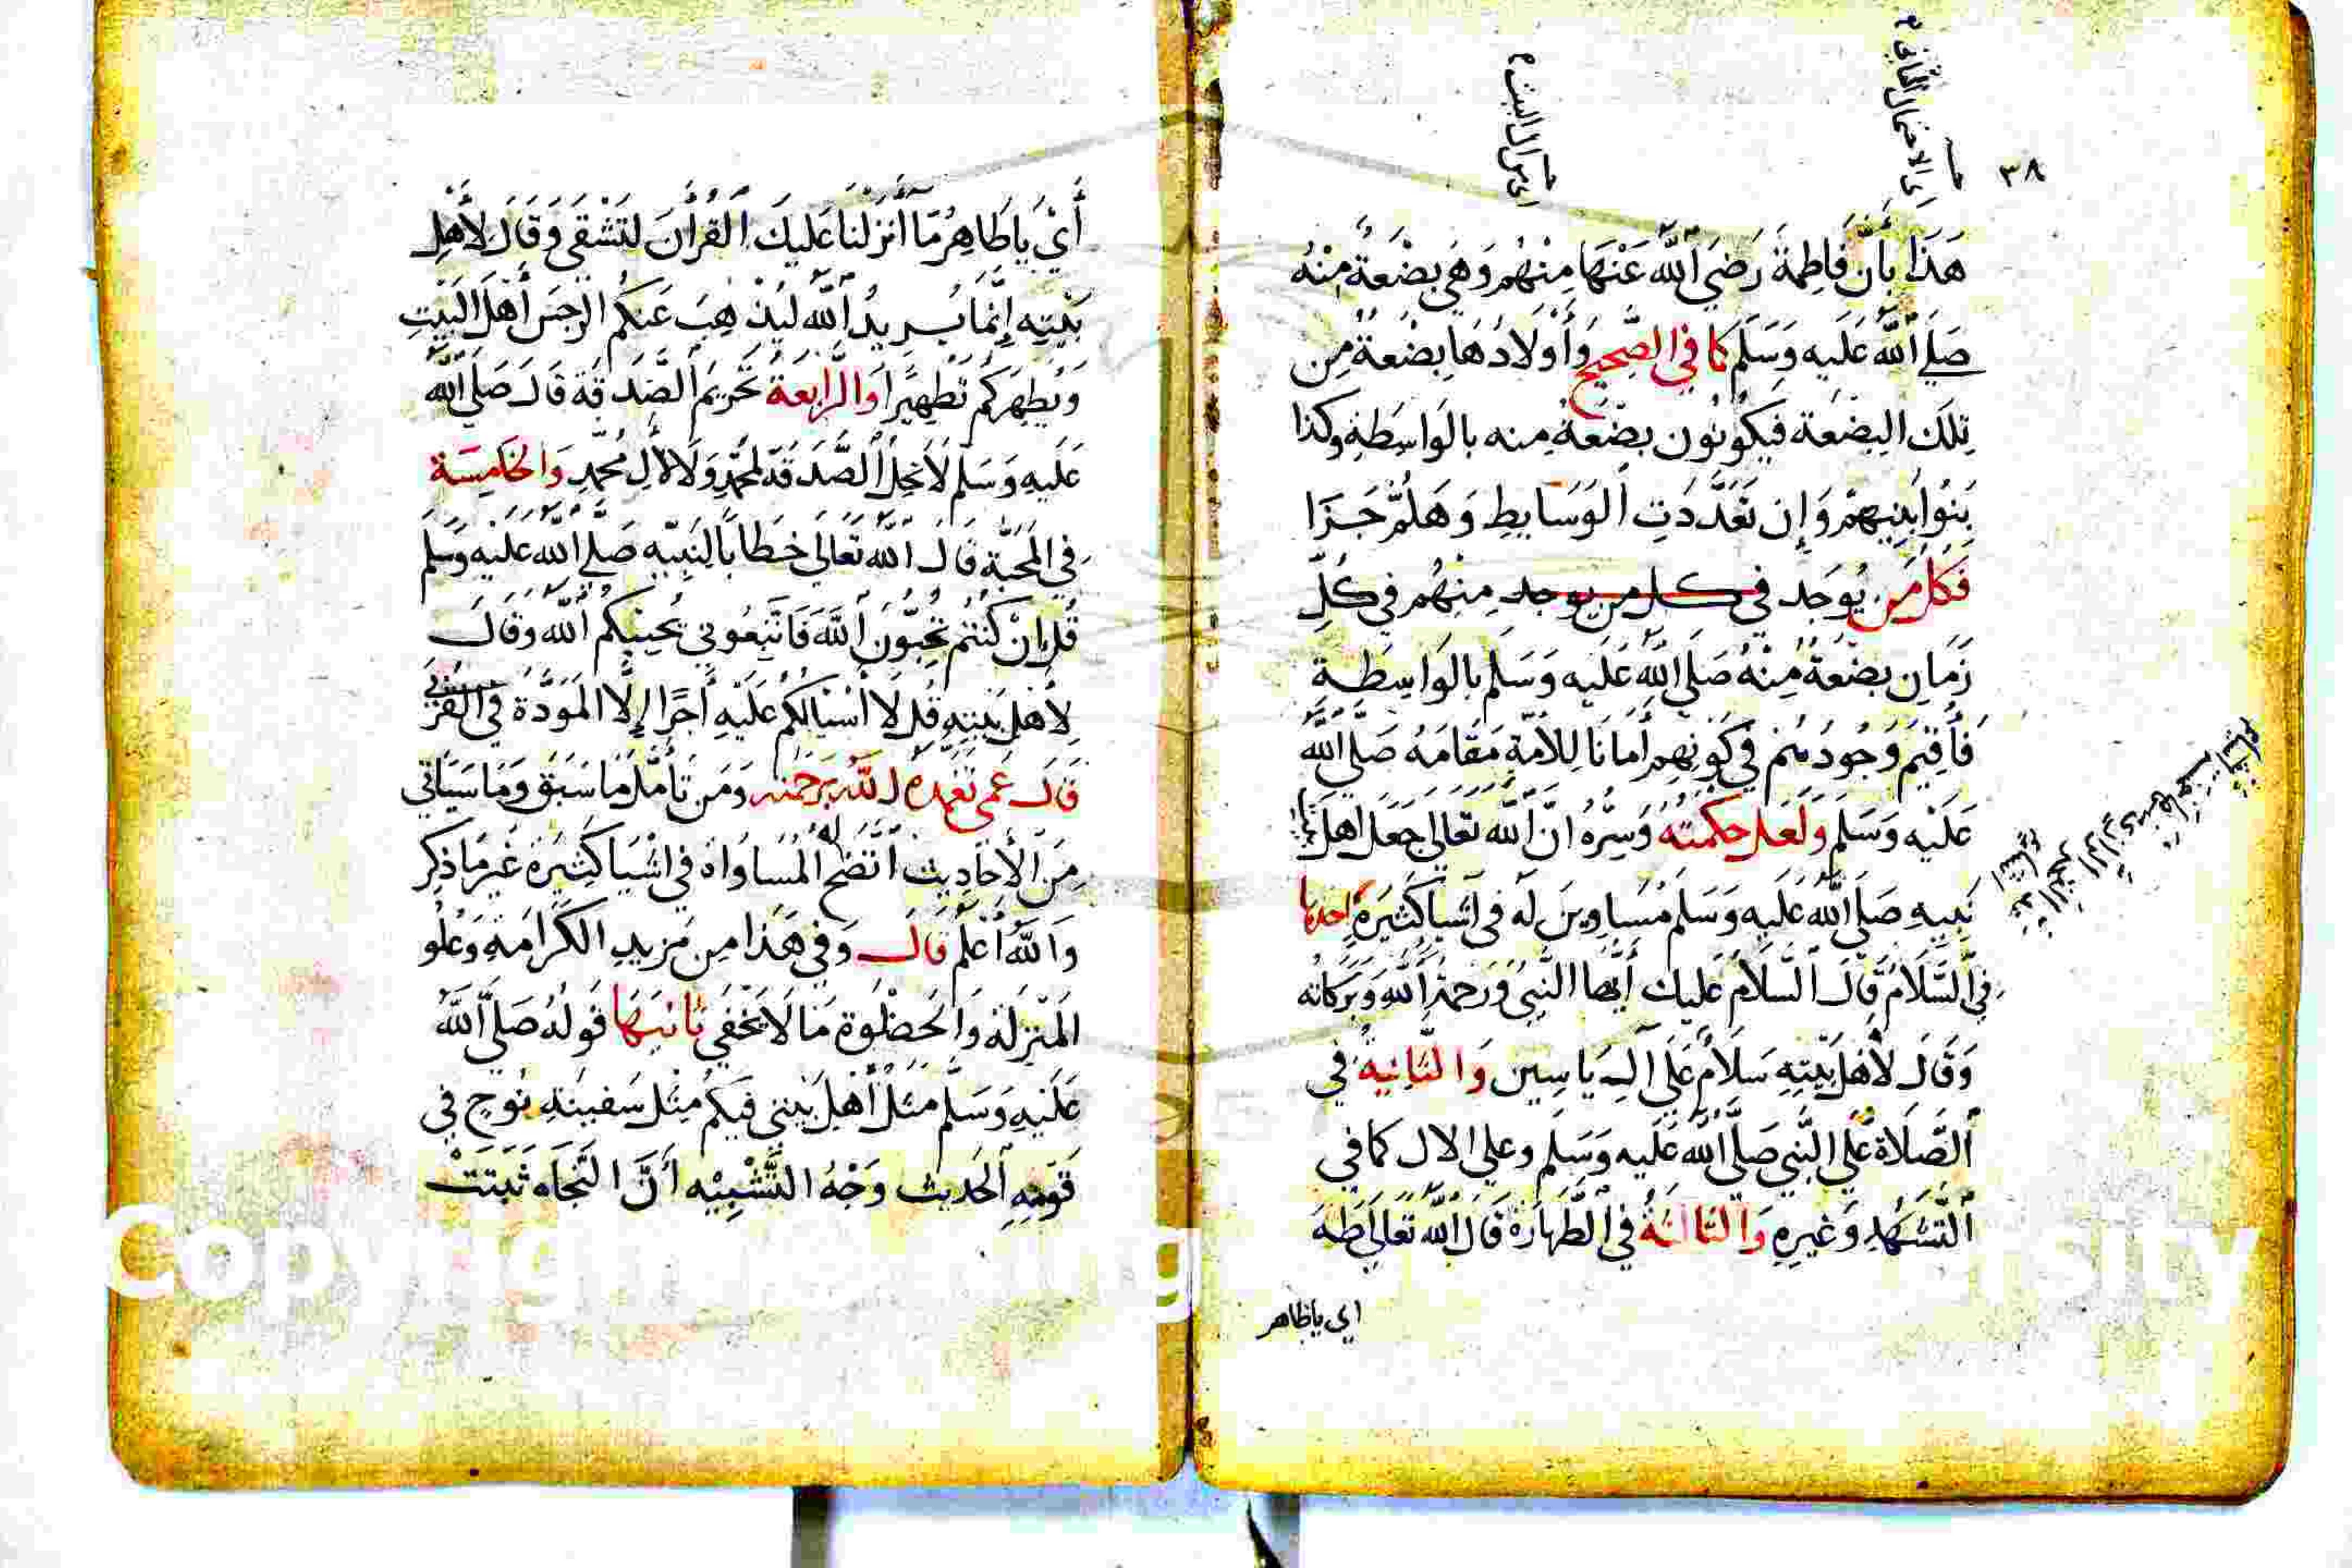 ٣٨
أي الاحتمال الثاني
أي من آل البيت
هَذَا بِأَنَّ فَاطِمَةَ رَضِيَ اللَّهُ عَنْهَا مِنْهُم وَهِيَ بِضْعَةٌ مِنْهُ
صَلَّى اللَّهُ عَلَيهِ وَسَلَّمَ كما في الصَّحِيحِ وَأَوْلَادُهَا بِضْعَةٌ مِن
تِلكَ البِضعَة فَيَكُونُون بِضعَةً مِنه بالوَاسِطَةِ وكذا
بَنُوا بَنِيهِمْ وَإِن تَعَدَّدَتِ الوَسَايِطِ وَهَلُمَّ جَرَّا
فَكُل مَن يُوجَد في كل من يوجد مِنْهُم في كُلِّ
زَمَانٍ بِضْعَةٌ مِنْهُ صَلَى اللَّهُ عَلَيه وَسَلم بالوَاسِطَةِ
فَأُقِيمَ وُجُودُهُم في كَونِهِم أَمَانًا لِلأُمَّةِ مَقَامَهُ صَلَّى اللَّه
عَلَيْه وَسَلم ولَعَل حكمته وَسِرُّه انَّ اللَّه تعَالى جَعَل اهل
نَبيهِ صَلَى اللَّه عَلَيهِ وَسَلم مُسَاوِينَ لَه فى اشيَا كَثِيرَة احدها
فِي السَّلَام قَالَ السَّلامُ عَلَيك أيُّها النَّبِي وَرَحمَةُ اللَّهِ وَبَرَكَاته
وَقَالَ لأَهْلِ بَيْتِهِ سَلَامٌ عَلَى آل يَاسِين وَالثَّانِيةُ فِي
الصَّلَاة عَلَى النَّبِي صَلَى اللَّه عَلَيه وَسَلم وعلى الال كما في
التَّشَهُدِ وَغَيرِهِ وَالثَّالثَةُ في الطَّهَارَة قَالَ اللَّه تعَالى طَهَ
اي ياطاهر
أَيْ يَاطَاهِرُ مَا أَنْزَلْنَا عَلَيكَ القُرْآنَ لِتَشْقَى وَقَالَ لأَهْلِ
بَيْتِهِ إِنَّمَا يُرِيدُ اللَّه لِيُذْهِبَ عَنكُم الرِّجسَ أَهْلَ البَيْتِ
وَيُطَهِرَكُم تَطْهِيرًا وَالرَّابعَة تَحْرِيمُ الصَّدَقَة قَالَ صَلَى اللَّه
عَلَيهِ وَسَلم لَا تحِلُّ الصَّدَقَة لمحَمَّدٍ وَلَا لِآلِ مُحَّمدٍ وَالخَامِسَة
في المَحَبَّة قَالَ اللَّه تَعَالَى خِطَابًا لِنَبِيّهِ صَلَّى اللَّه عَلَيه وَسَلم
قُل إنْ كُنْتُم تُحِبُّونَ اللَّهَ فَاتَّبِعُوني يُحْبِبْكُم اللَّه وَقَالَ
لِأَهْلِ بَيْتِهِ قُل لَا أَسْئَالُكُم عَلَيْهِ أَجْرًا إِلَّا المَوَدَّة فِي القُرْبى
قَالَ عَمِّى تَغَمدَهُ اللَّه بَرَحْمَته وَمَن تَأمَّلَ مَا سَبَقَ وَمَا سَيَأتي
مِنَ الأَحَادِيث اتَّضَح لَه المُسَاوَاة فى اشْيَا كَثِيرَة غَيرَ مَا ذكِر
وَاللَّهُ أَعْلَم قَالَ وَفي هَذَا مِن مَزِيدِ الكَرَامَةِ وَعُلُوِ
المَنْزِلَة وَالحَظْوَة مَا لَا يَخْفي ثَانيهَا قَولُهُ صَلَّى اللَّه
عَلَيْهِ وَسَلَّم مَثَلُ أَهْلِ بَيْتي فِيكُم مِثْل سَفِينَةِ نُوحٍ في
قَومِهِ الحَديث وَجْهُ التَّشْبِيْه أَنَّ النَّجَاه ثَبَتَتْ